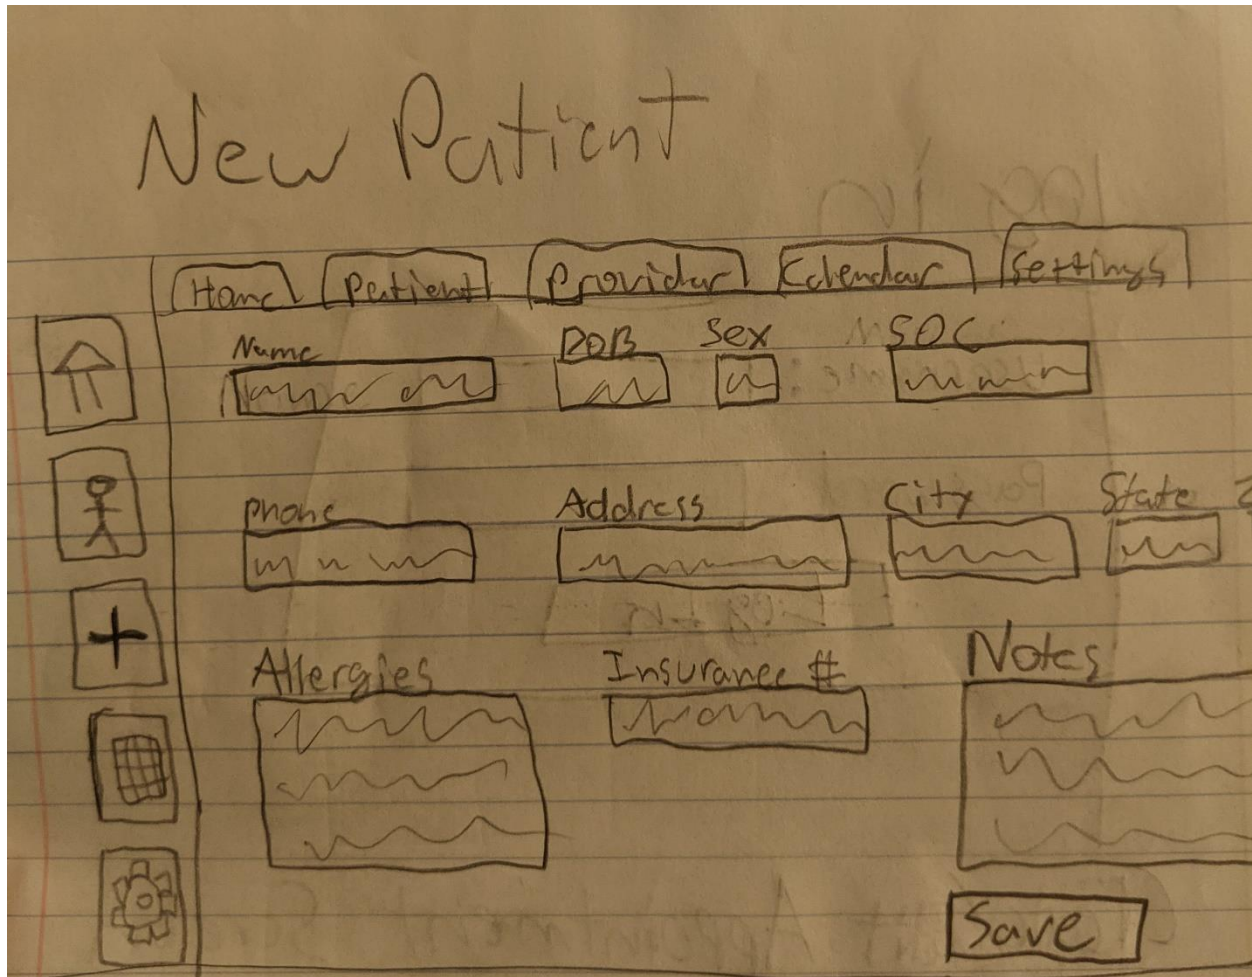 New Patient
Home Patient Provider Calendar Settings
Name DOB Sex SOC
Phone Address City State
Allergies Insurance # Notes
Save